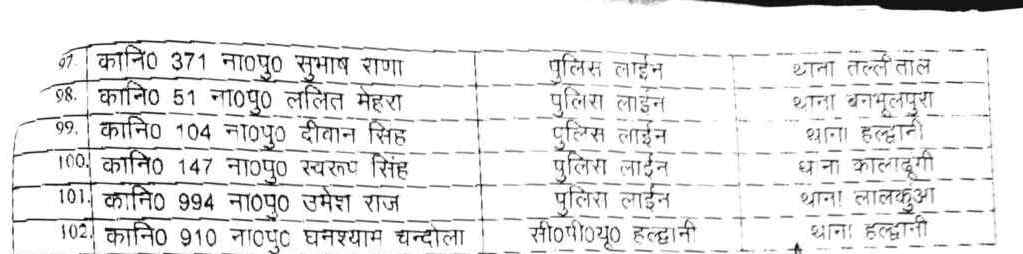 97. कानि0 371 ना0पु0 सुभाष राणा पुलिस लाईन थाना तल्लीताल
98. कानि0 51 ना0पु0 ललित मेहरा पुलिस लाईन थाना बनभूलपुरा
99. कानि0 104 ना0पु0 दीवान सिंह पुलिस लाईन थाना हल्द्वानी
100. कानि0 147 ना0पु0 स्वरूप सिंह पुलिस लाईन थाना कालाढूगी
101. कानि0 994 ना0पु0 उमेश राज पुलिस लाईन थाना लालकुआ
102. कानि0 910 ना0पु0 घनश्याम चन्दोला सी0पी0यू0 हल्द्वानी थाना हल्द्वानी